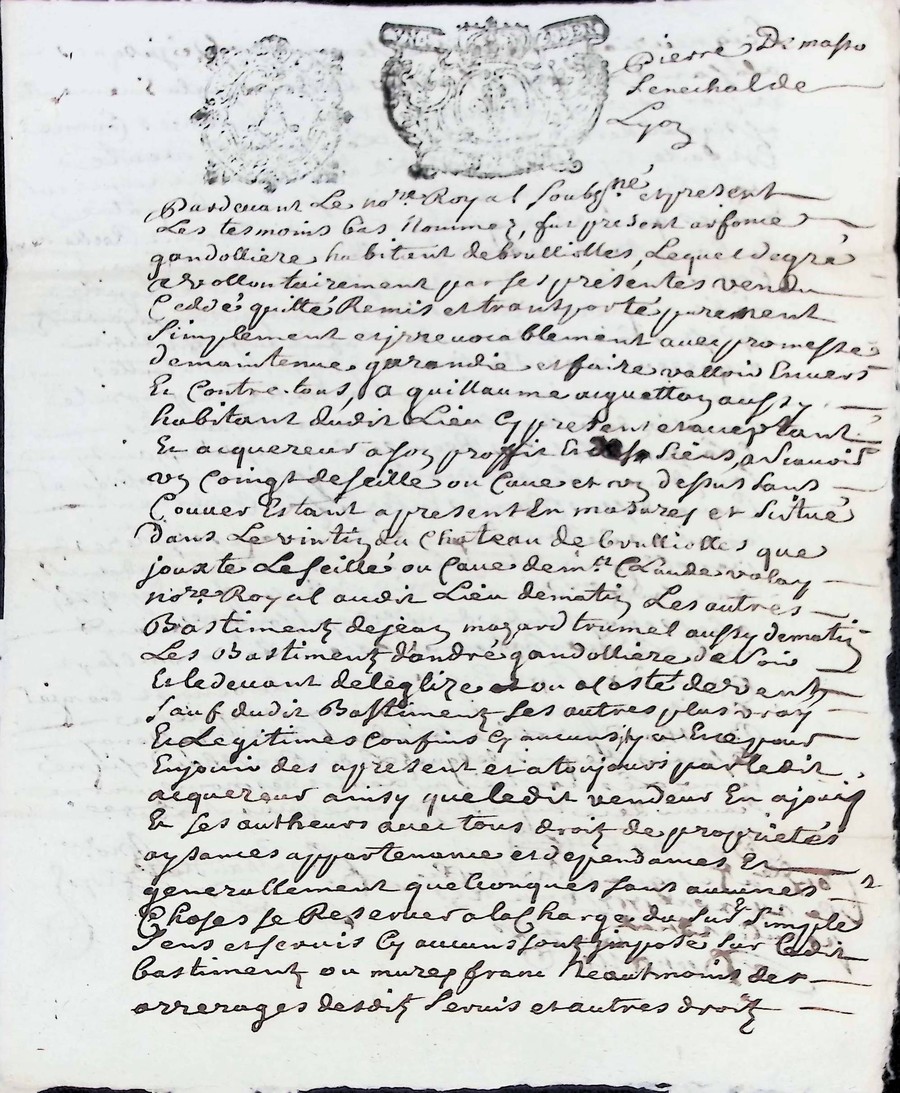 VN ... DEN
Pierre De masso
Senechal de
Lyon
Pardevant Le no.re Royal Soubz.né et present
Les tesmoins bas Nommez, fut present anfome
gandolliere habitent de boulliolles, Lequel de gré
a vollontairement par ses presentes vendu
Ceddé quitté Remis et transporté purement
Simplement et irrevocablement avec promesse
de maintenue garandie et faire valloir Envers
Et Contre tous, A guillaume arguettoy aussy
habitant dudit Lieu Cy present et aceptant
Et acquereur a son proffit Et des Siens, a Scavoir
un Coingt de seille ou Cave et un dessus Sans
Couver Estant a present En masures et Situé
Dans Le vintin du Chateau de boulliolles que
jouxte Le Seillé ou Cave de m.re Claude valay
no.re Royal audit Lieu de matin Les autres
Bastimentz de jean mazard trumel aussy de matin
Les Bastimentz d'andré gandolliere de Soir
Et le devant de leglize et ou a Costé de vent
Sauf dudit Bastimentz Ses autres plus vray
Et Legitimes Confins Cy aucuns y a Et ce pour
En jouir des a present et a toujours par ledit
acquereur ainsy que ledit vendeur En a jouis
Et Ses autheurs avec tous droitz de proprietés
aysances appartenance et dependances Et
generallement quelconques sans aucunes
Choses se Reserver a la Charge du Sur Simple
Sens et servis Cy aucuns sont imposé sur Ledit
bastimentz ou mures franc Neautmoins des
arrerages desditz Servis et autres droitz